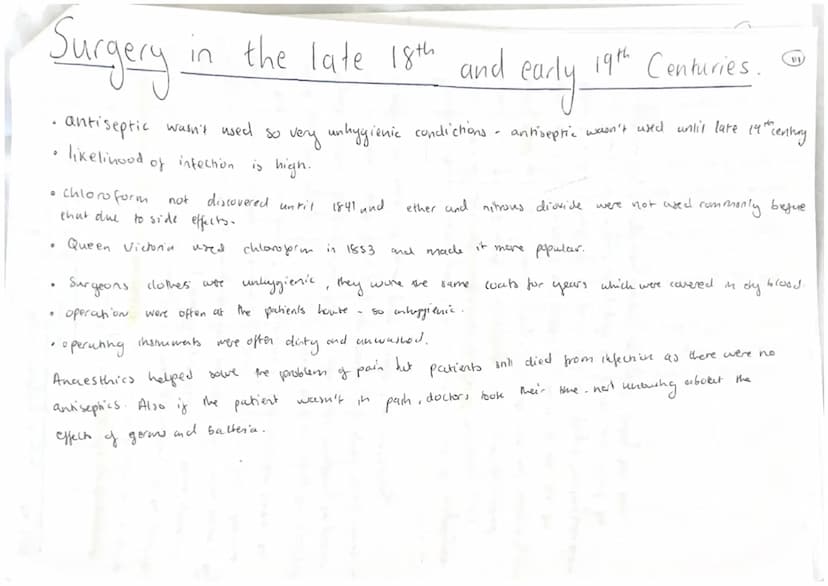 Surgery in the late 18th and early 19th Centuries.
• antiseptic wasn't used so very unhygienic condictions - antiseptic wasn't used until late 19th century
• likelihood of infection is high.
• chloroform not discovered until 1841 and ether and nitrous dioxide were not used commonly before
that due to side effects.
• Queen Victoria used chloroform in 1853 and made it more popular.
• Surgeons clothes were unhygienic, they wore the same coats for years which were covered in dry blood.
• operation were often at the patients house - so unhygienic.
• operating instruments were often dirty and unwashed.
Anaesthics helped solve the problem of pain but patients still died from infection as there were no
antiseptics. Also if the patient wasn't in pain, doctors took their time - not knowing about the
effects of germs and bacteria.